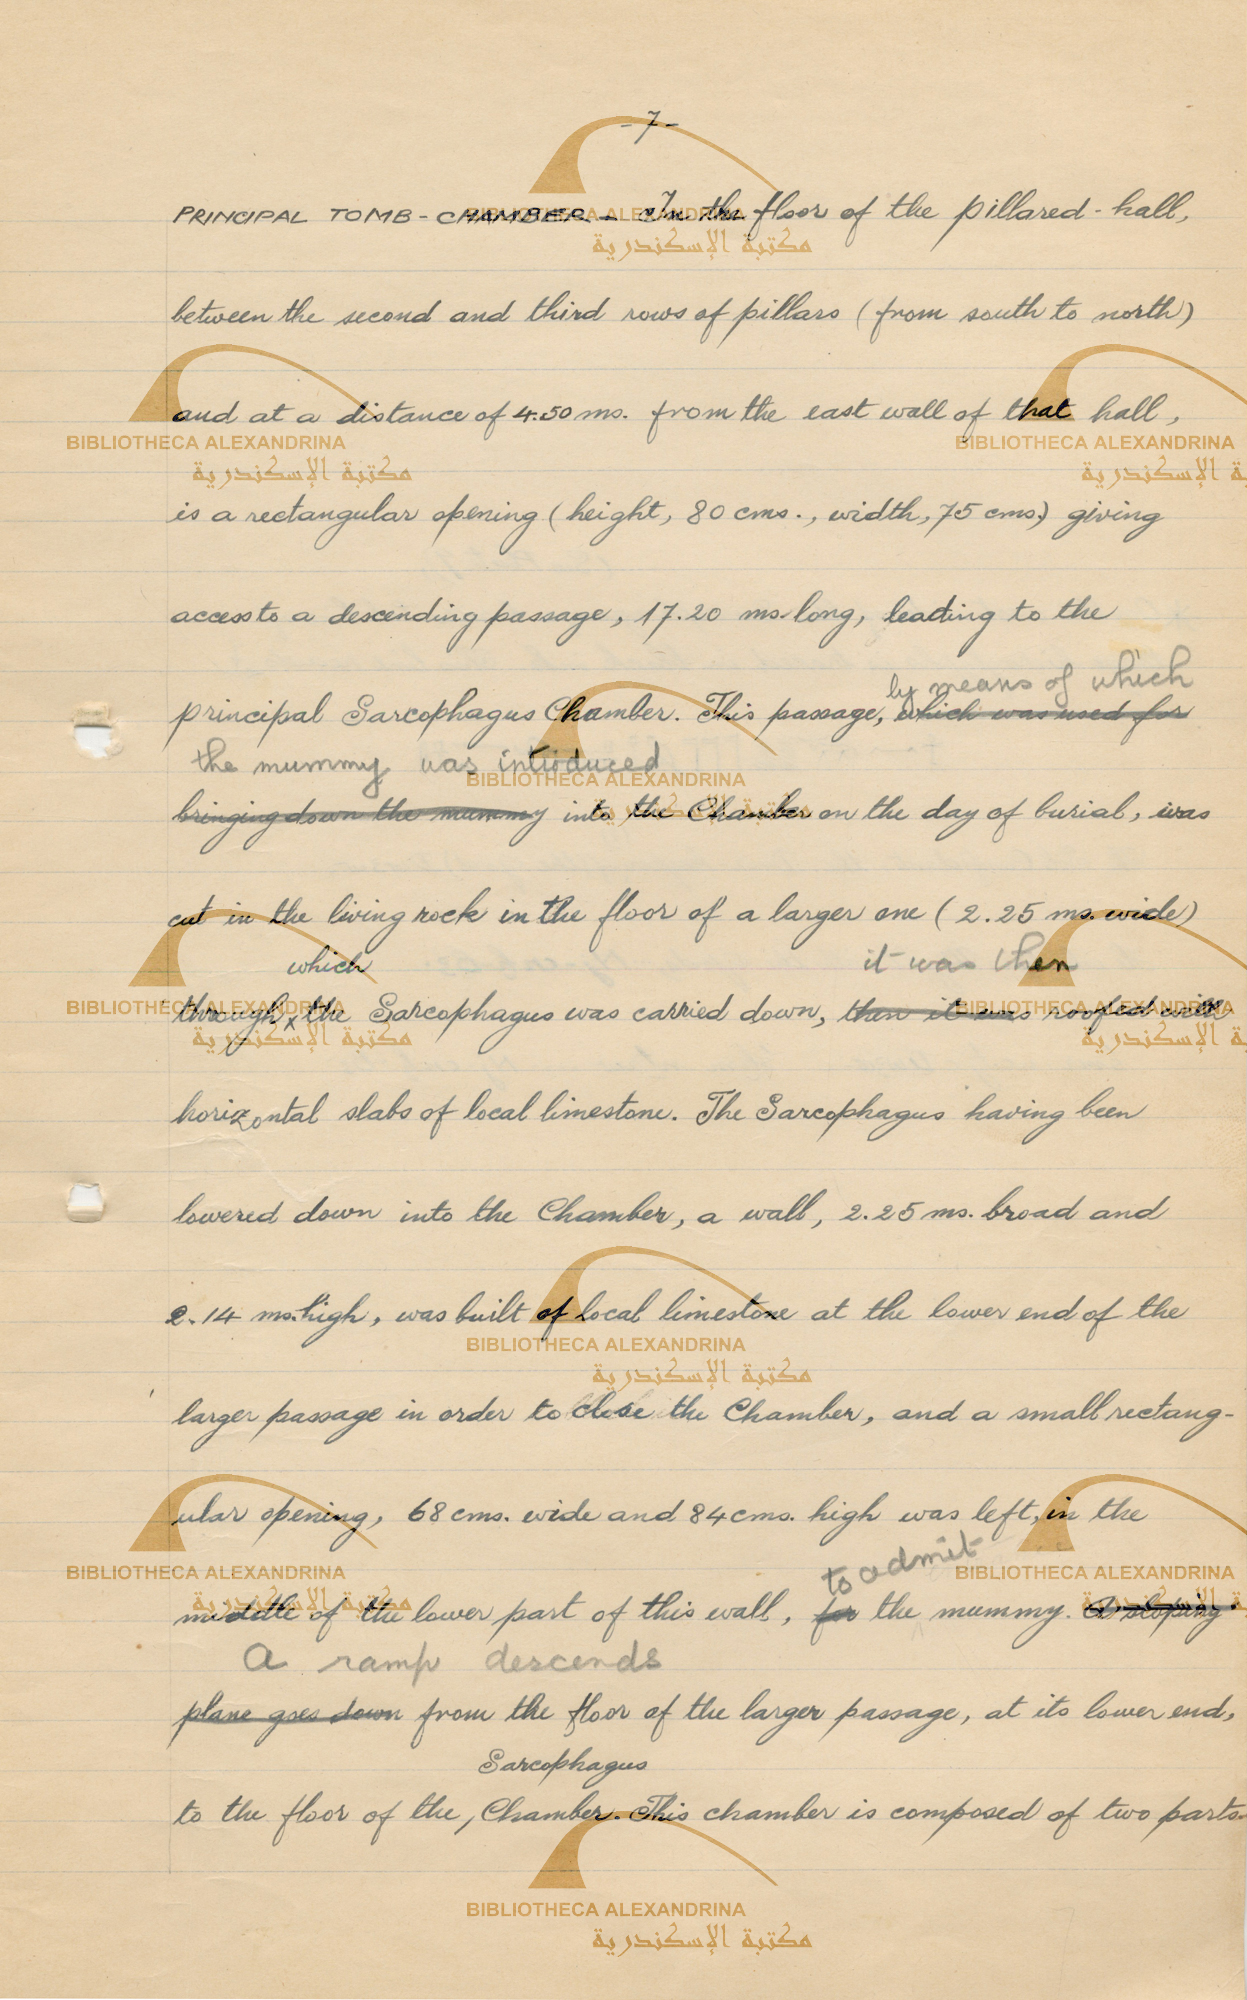 - 7 -
PRINCIPAL TOMB - CHAMBER - In the floor of the pillared - hall,
between the second and third rows of pillars (from south to north)
and at a distance of 4.50 ms. from the east wall of that hall,
is a rectangular opening (height, 80 cms., width, 75 cms.) giving
access to a descending passage, 17.20 ms. long, leading to the
by means of which
principal Sarcophagus Chamber. This passage, which was used for
the mummy was introduced
bringing down the mummy into the Chamber on the day of burial, was
cut in the living rock in the floor of a larger one (2.25 ms. wide)
which it was then
through x the Sarcophagus was carried down, then it was roofed with
horizontal slabs of local limestone. The Sarcophagus having been
lowered down into the Chamber, a wall, 2.25 ms. broad and
2.14 ms. high, was built of local limestone at the lower end of the
larger passage in order to close the Chamber, and a small rectang-
ular opening, 68 cms. wide and 84 cms. high was left, in the
to admit
middle of the lower part of this wall, for the mummy. A sloping
A ramp descends
plane goes down from the floor of the larger passage, at its lower end,
Sarcophagus
to the floor of the, Chamber. This chamber is composed of two parts-
BIBLIOTHECA ALEXANDRINA
مكتبة الإسكندرية
BIBLIOTHECA ALEXANDRINA
مكتبة الإسكندرية
BIBLIOTHECA ALEXANDRINA
BIBLIOTHECA ALEXANDRINA
مكتبة الإسكندرية
BIBLIOTHECA ALEXANDRINA
مكتبة الإسكندرية
BIBLIOTHECA ALEXANDRINA
BIBLIOTHECA ALEXANDRINA
مكتبة الإسكندرية
BIBLIOTHECA ALEXANDRINA
مكتبة الإسكندرية
BIBLIOTHECA ALEXANDRINA
BIBLIOTHECA ALEXANDRINA
مكتبة الإسكندرية